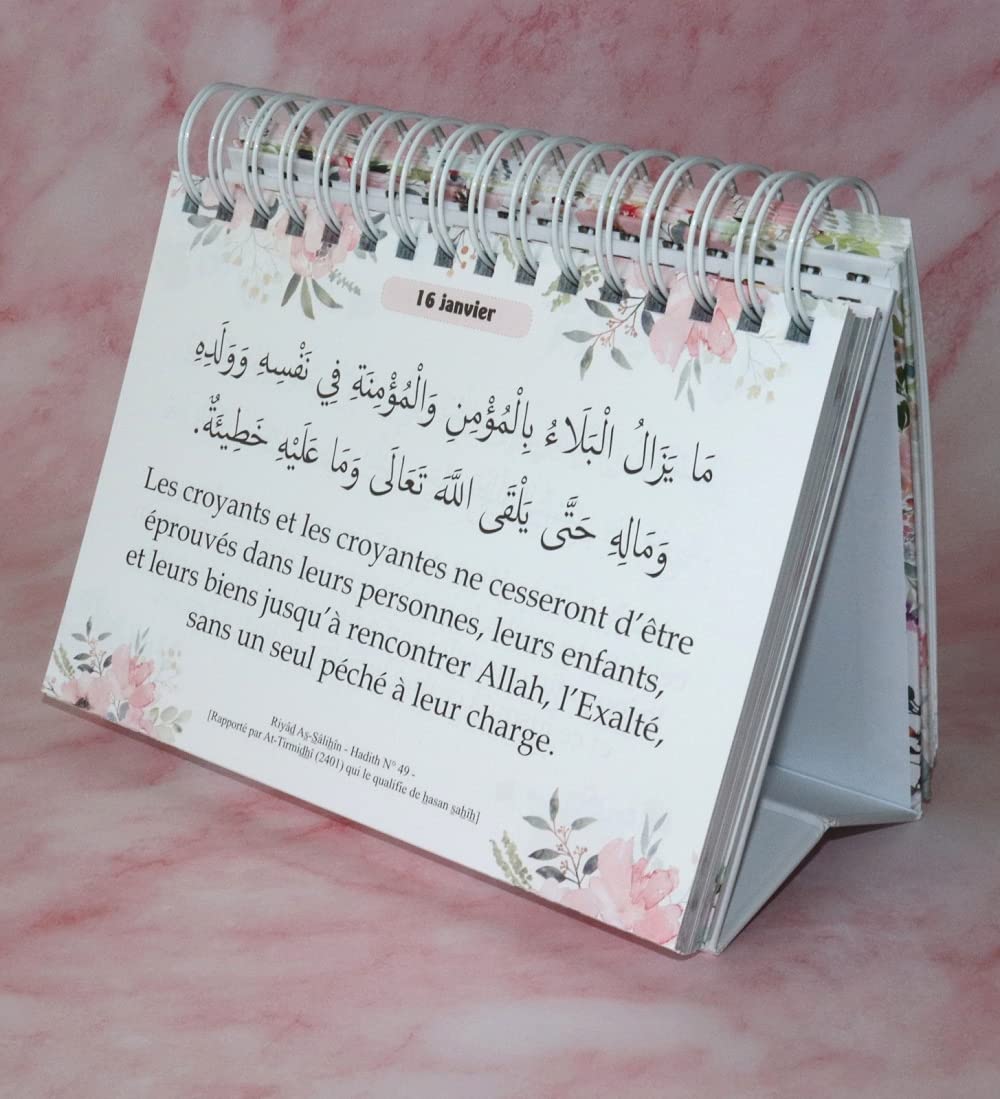 16 janvier
مَا يَزَالُ الْبَلَاءُ بِالْمُؤْمِنِ وَالْمُؤْمِنَةِ فِي نَفْسِهِ وَوَلَدِهِ
وَمَالِهِ حَتَّى يَلْقَى اللَّهَ تَعَالَى وَمَا عَلَيْهِ خَطِيئَةٌ.
Les croyants et les croyantes ne cesseront d’être
éprouvés dans leurs personnes, leurs enfants,
et leurs biens jusqu’à rencontrer Allah, l’Exalté,
sans un seul péché à leur charge.
Riyâḏ Aṣ-Ṣâliẖîn - Hadith N° 49 -
[Rapporté par At-Tirmiḏhî (2401) qui le qualifie de ẖasan ṣaẖîẖ]